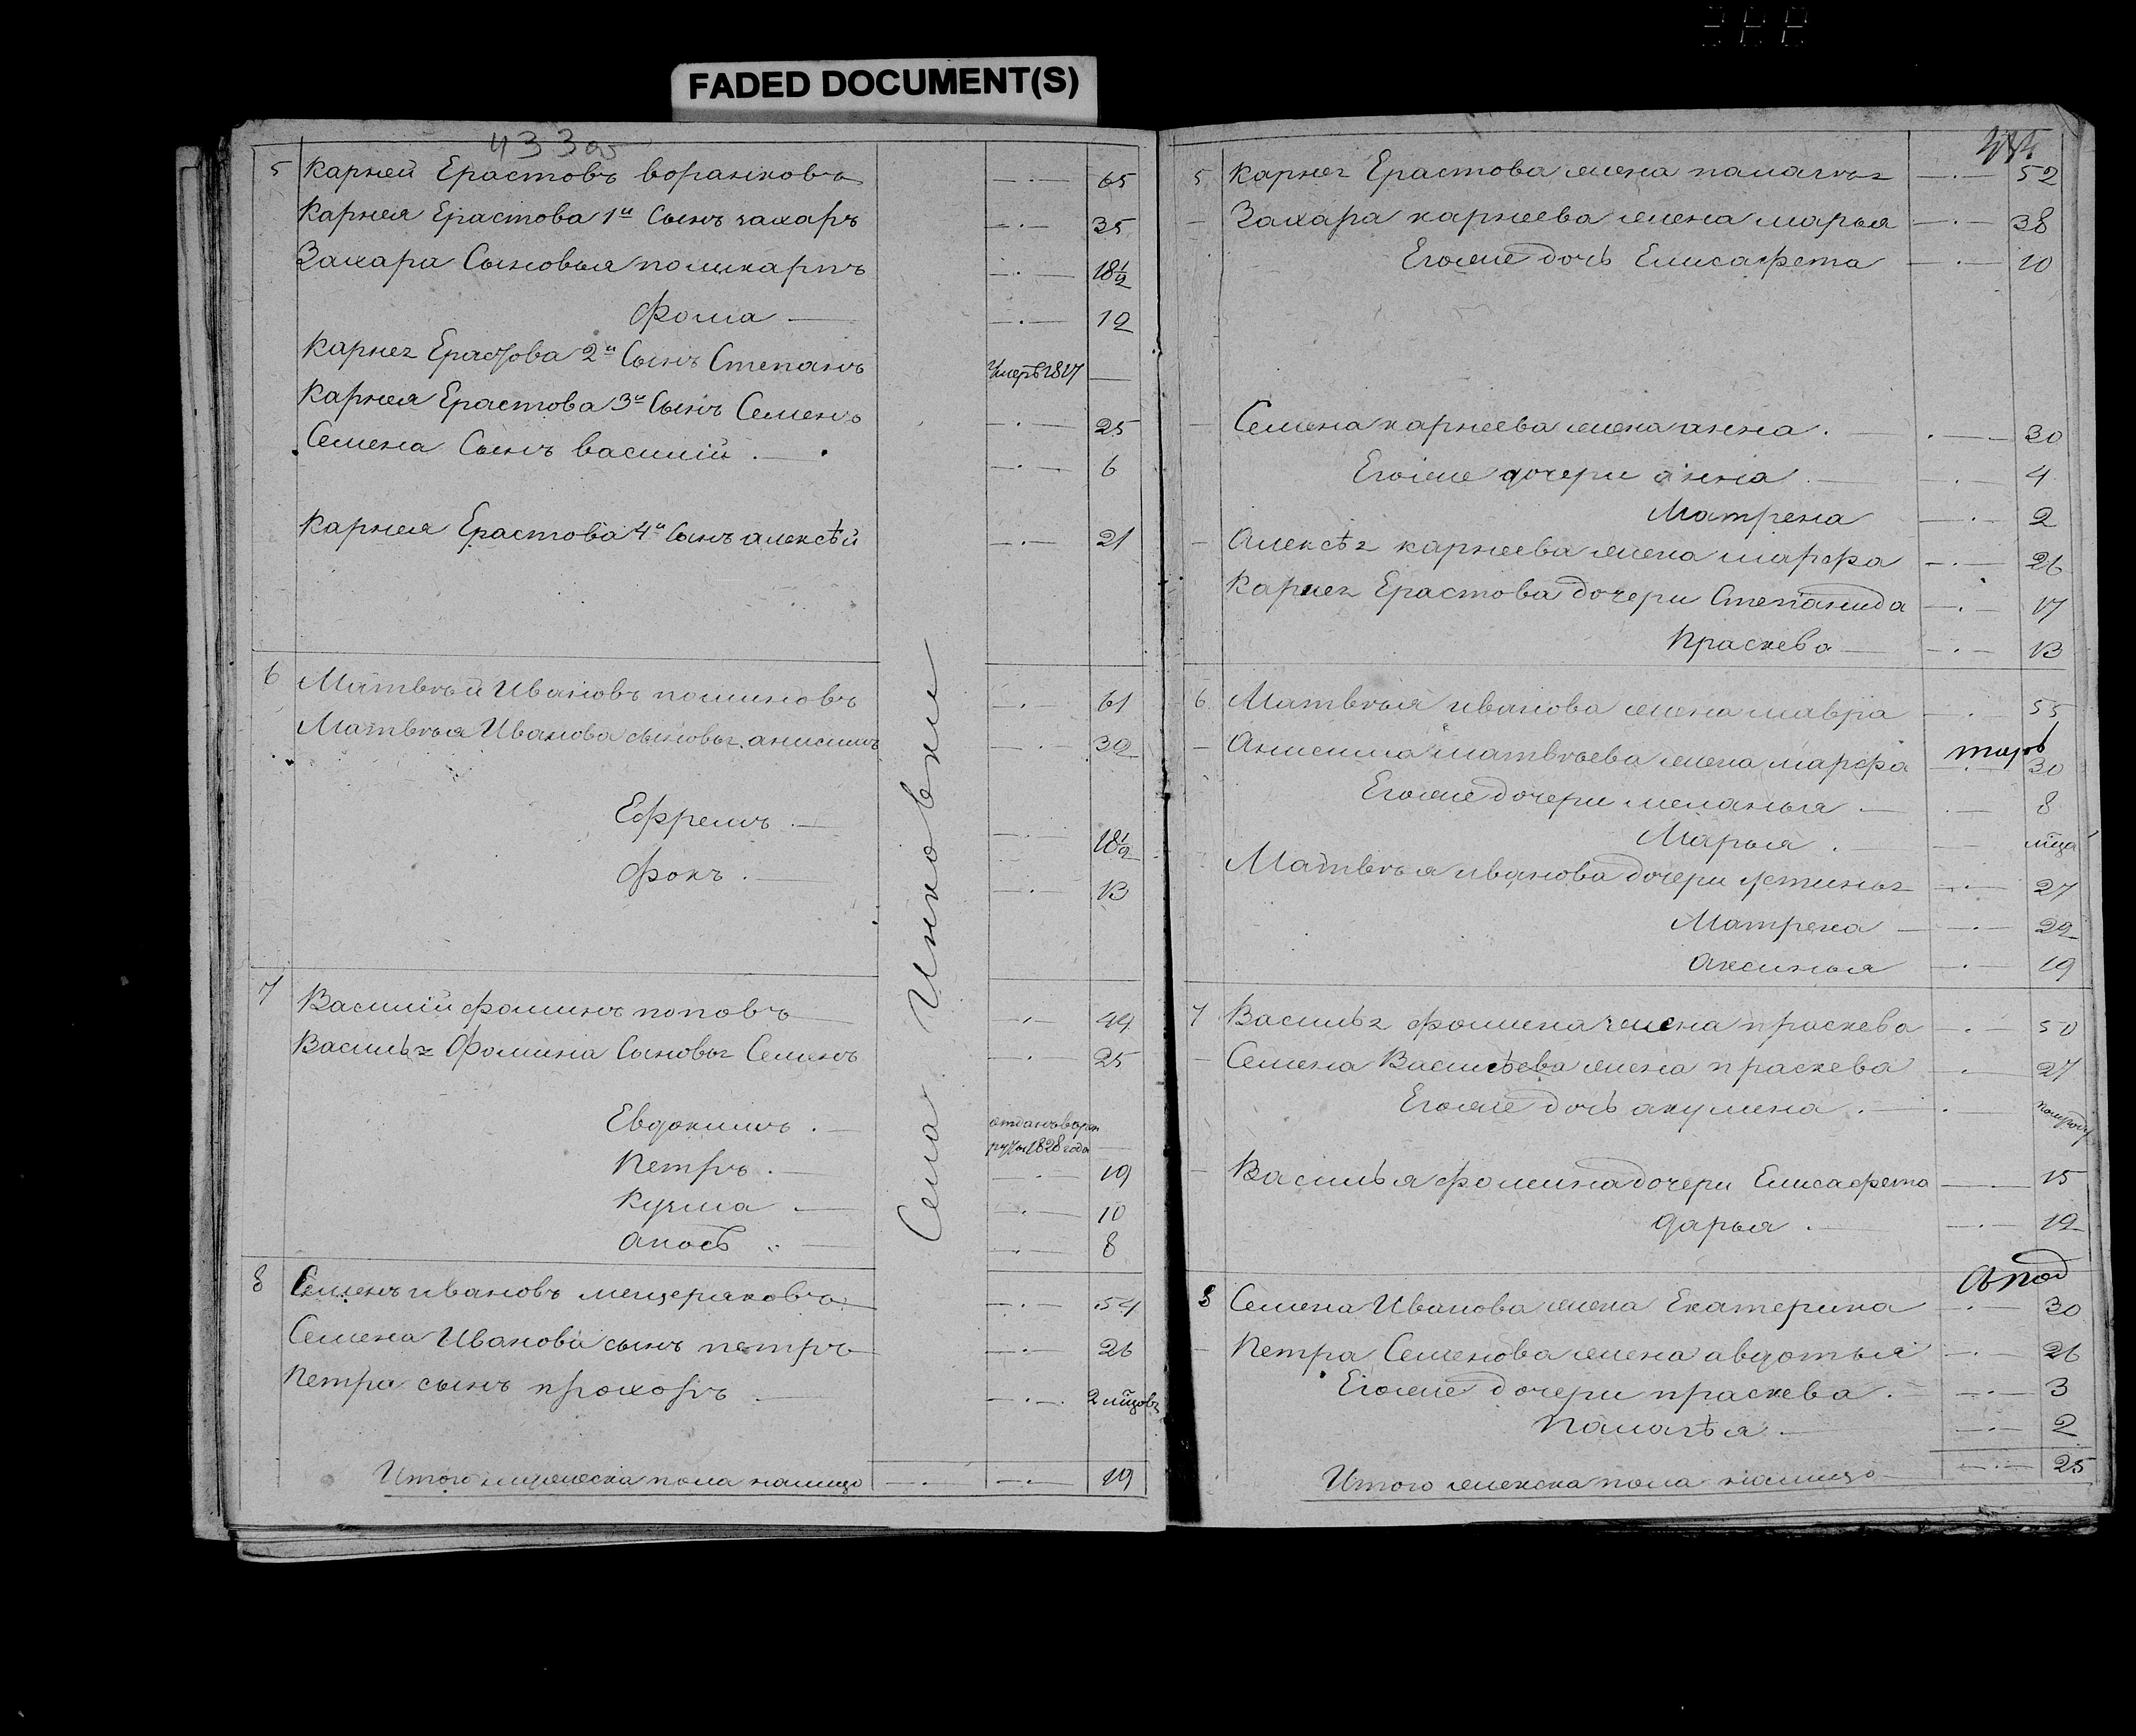 FADED DOCUMENT(S)
433 об
5 Карней Ерастовъ воранковъ 65
Карнея Ерастова 1й Сынъ захаръ 35
Захара Сыновья поликарпъ 18 1/2
фома 12
Карнея Ерастова 2й Сынъ Степанъ умеръ 1817
Карнея Ерастова 3й Сынъ Семенъ 25
Семена Сынъ василій 6
Карнея Ерастова 4й Сынъ алексѣй 21
6 Матвѣй Ивановъ 61
Матвѣя Иванова сыновья анисимъ 32
Ефремъ 18 1/2
фокъ 13
7 Василій фоминъ поповъ 44
Василья Фомина Сыновья Семенъ 25
Евдокимъ отданъ в рекруты 1828 года
Петръ 19
Кузма 10
8
8 Семенъ ивановъ мещеряковъ 54
Семена Иванова сынъ петръ 26
Петра сынъ прохоръ 2 мцовъ
Итого мужеска пола налицо 19
Села Инковки
5 Карнея Ерастова жена палагѣя 52
Захара карнеева жена марья 38
Егоже дочь Елисафета 10
Семена карнеева жена анна 30
Егоже дочери анна 4
Матрена 2
Алексѣя карнеева жена марфа 26
Карнея Ерастова дочери Степанида 17
Праскева 13
6 Матвѣя иванова жена мавра 55
Анисима матвѣева жена марфа 30
Егоже дочери меланья 8
Марья
Матвѣя иванова дочери устинья 27
Матрена 22
Аксинья 19
7 Василья фомина жена праскева 50
Семена Васильева жена праскева 27
Егоже дочь акулина полугоду
Василья фомина дочери Елисафета 15
дарья 12
8 Семена Иванова жена Екатерина 30
Петра Семенова жена авдотья 26
Егоже дочери праскева 3
Палагѣя 2
Итого женска пола налицо 25